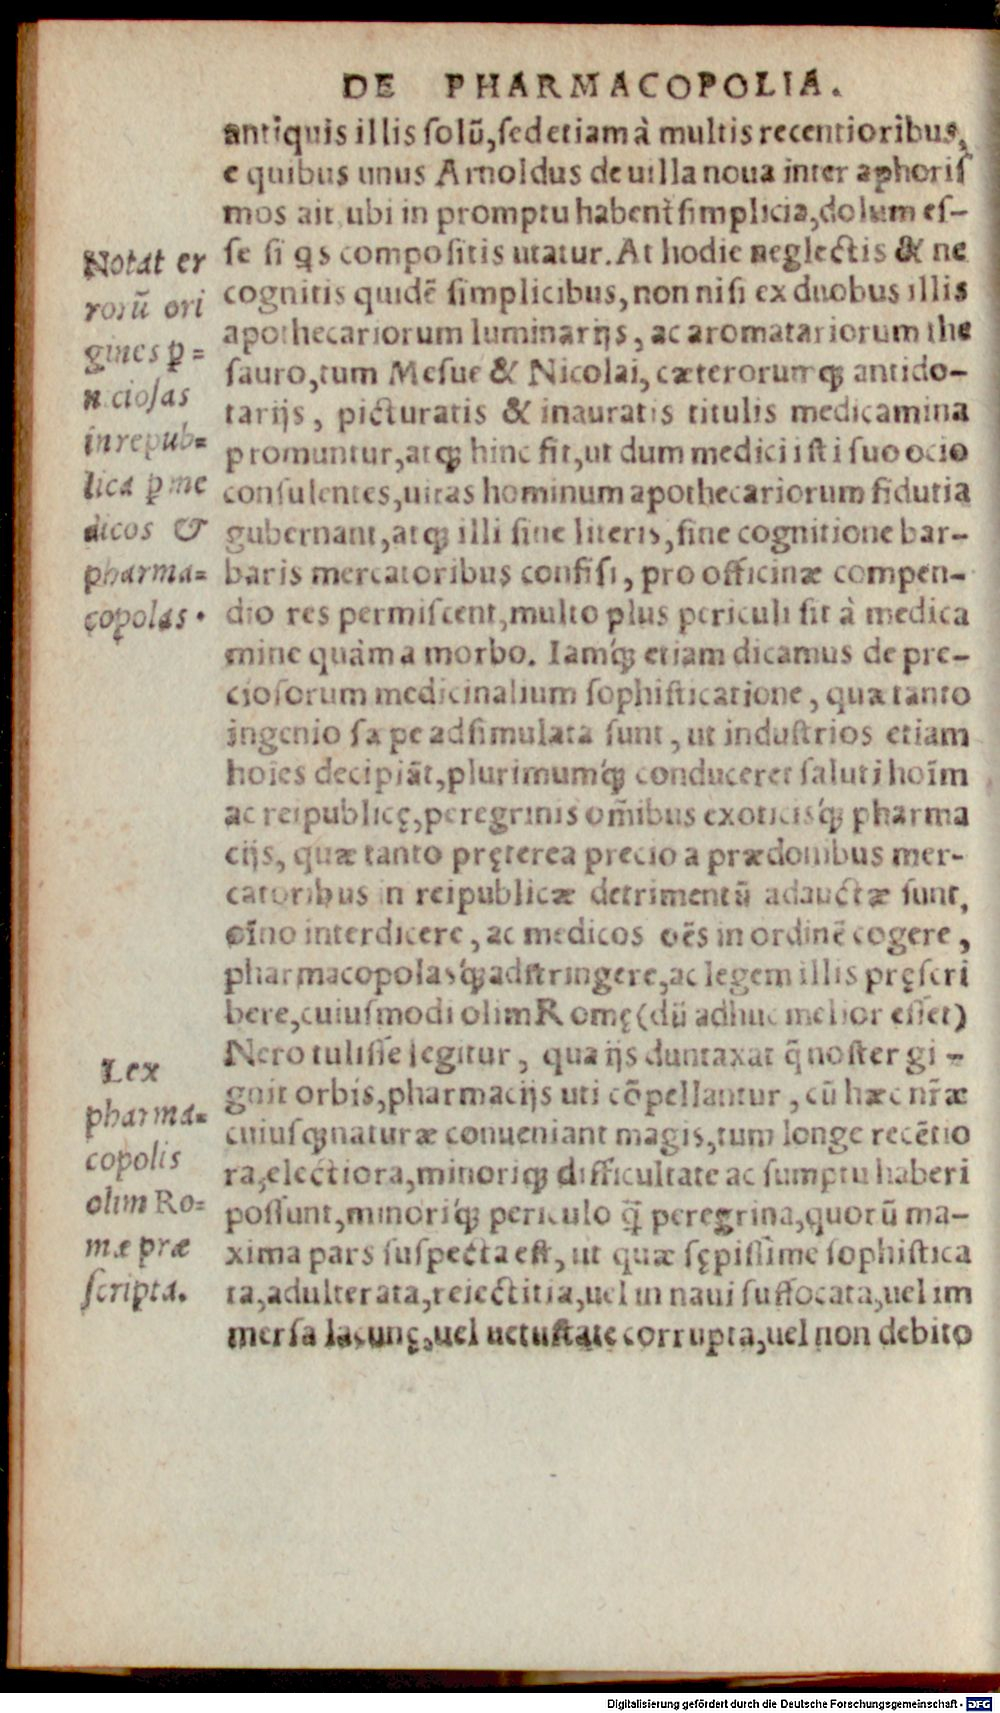 DE PHARMACOPOLIA.
antiquis illis solũ, sed etiam à multis recentioribus,
e quibus unus Arnoldus de uilla noua inter aphoris
mos ait, ubi in promptu habent̃ simplicia, dolum es-
se si qs compositis utatur. At hodie neglectis & ne
cognitis quidẽ simplicibus, non nisi ex duobus illis
apothecariorum luminarijs, ac aromatariorum the
sauro, tum Mesue & Nicolai, cæterorumq; antido-
tarijs, picturatis & inauratis titulis medicamina
promuntur, atq; hinc fit, ut dum medici isti suo ocio
consulentes, uitas hominum apothecariorum fidutia
gubernant, atq; illi sine literis, sine cognitione bar-
baris mercatoribus confisi, pro officinæ compen-
dio res permiscent, multo plus periculi sit à medica
mine quàm a morbo. Iamq́; etiam dicamus de pre-
ciosorum medicinalium sophisticatione, quæ tanto
ingenio sæpe adsimulata sunt, ut industrios etiam
hoĩes decipiãt, plurimumq́; conduceret saluti hoĩm
ac reipublicę, peregrinis om̃ibus exoticisq́; pharma
cijs, quæ tanto pręterea precio a prædonibus mer-
catoribus in reipublicæ detrimentũ adauctæ sunt,
oĩno interdicere, ac medicos oẽs in ordinẽ cogere,
pharmacopolasq́; adstringere, ac legem illis pręscri
bere, cuiusmodi olim Romę (dũ adhuc melior esset)
Nero tulisse legitur, qua ijs duntaxat q̃ noster gi-
gnit orbis, pharmacijs uti cõpellantur, cũ hæc nr̃æ
cuiusq; naturæ conueniant magis, tum longe recẽtio
ra, electiora, minoriq; difficultate ac sumptu haberi
possunt, minoriq́; periculo q̃ peregrina, quorũ ma-
xima pars suspecta est, ut quæ sępissime sophistica
ta, adulterata, reiectitia, uel in naui suffocata, uel im
mersa lacunę, uel uetustate corrupta, uel non debito
Notat er
rorũ ori
gines ꝑ=
niciosas
in repub=
lica ꝑ me
dicos &
pharma=
copolas.
Lex
pharma=
copolis
olim Ro=
mæ præ
scripta.
Digitalisierung gefördert durch die Deutsche Forschungsgemeinschaft - DFG